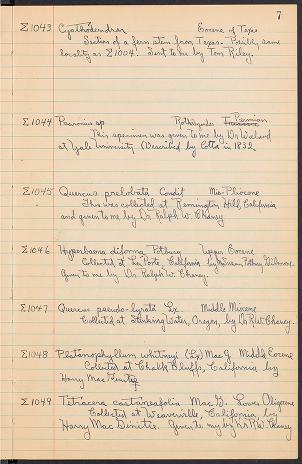 7
Σ1043 Cyathodendron Eocene of Texas
Section of a fern stem from Texas. Possibly same
locality as Σ1004. Sent to me by Tom Riley.
Σ1044 Psaronius sp Rothliegendes Permian
This specimen was given to me by Dr Wieland
at Yale University (Described by Cotta in 1832
Σ1045 Quercus prelobata Condit Mio-Pliocene
This was collected at Remington Hill, California
and given to me by Dr Ralph W. Chaney
Σ1046 Hyperbaena diforma Potbury Upper Eocene
Collected at La Porte, California by Susan Potbury
Given to me by Dr. Ralph W. Chaney.
Σ1047 Quercus pseudo-lyrata Lx Middle Miocene
Collected at Stinking Water, Oregon, by Dr R.W. Chaney.
Σ1048 Platanophyllum whitneyi (Lx) MacG. Middle Eocene
Collected at Chalk Bluffs, California by
Harry MacGinitie
Σ1049 Tetracera castaneaefolia MacG. Lower Oligocene
Collected at Weaverville, California by
Harry MacGinitie. Given to me by Dr R.W. Chaney